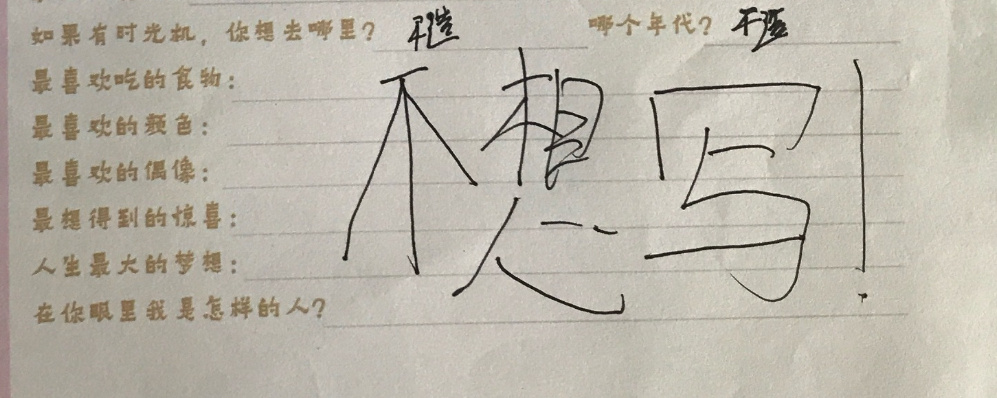 如果有时光机，你想去哪里？ 不造 哪个年代？ 不造
最喜欢吃的食物：
最喜欢的颜色：
最喜欢的偶像：
最想得到的惊喜：
人生最大的梦想：
在你眼里我是怎样的人？
不想写！